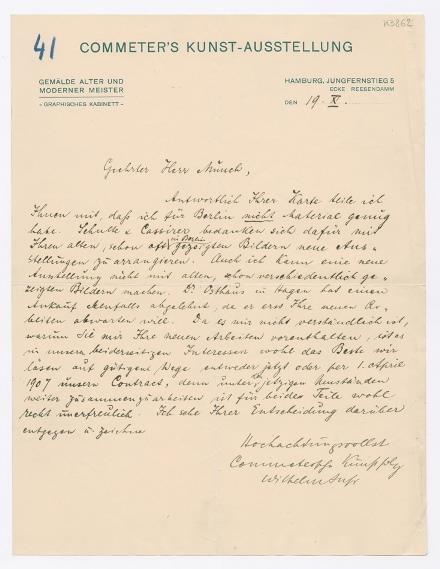 K3862
41 COMMETER'S KUNST-AUSSTELLUNG
GEMÄLDE ALTER UND
MODERNER MEISTER
- GRAPHISCHES KABINETT -
HAMBURG, JUNGFERNSTIEG 5
ECKE REESENDAMM
DEN 19. XI.
Geehrter Herr Munch,
Antwortlich Ihrer Karte teile ich
Ihnen mit, daß ich für Berlin nicht Material genug
habe. Schulte & Cassirer bedanken sich dafür mit
Ihren alten, schon oft in Berlin gezeigten Bildern neue Aus-
stellungen zu arrangieren. Auch ich kann eine neue
Ausstellung nicht mit alten, schon verschiedentlich ge-
zeigten Bildern machen. Dr. Osthaus in Hagen hat einen
Ankauf ebenfalls abgelehnt, da er erst Ihre neuen Ar-
beiten abwarten will. Da es mir nicht verständlich ist,
warum Sie mir Ihre neuen Arbeiten vorenthalten, ist es
in unserm beiderseitigen Interessen wohl das Beste wir
lösen auf gütigem Wege entweder jetzt oder per 1. April
1907 unsern Contract, denn unter den jetzigen Umständen
weiter zusammenzuarbeiten ist für beiden Teile wohl
recht unerfreulich. Ich sehe Ihrer Entscheidung darüber
entgegen u. zeichne
Hochachtungsvollst
Commetersche Kunsthdlg
Wilhelm Suhr